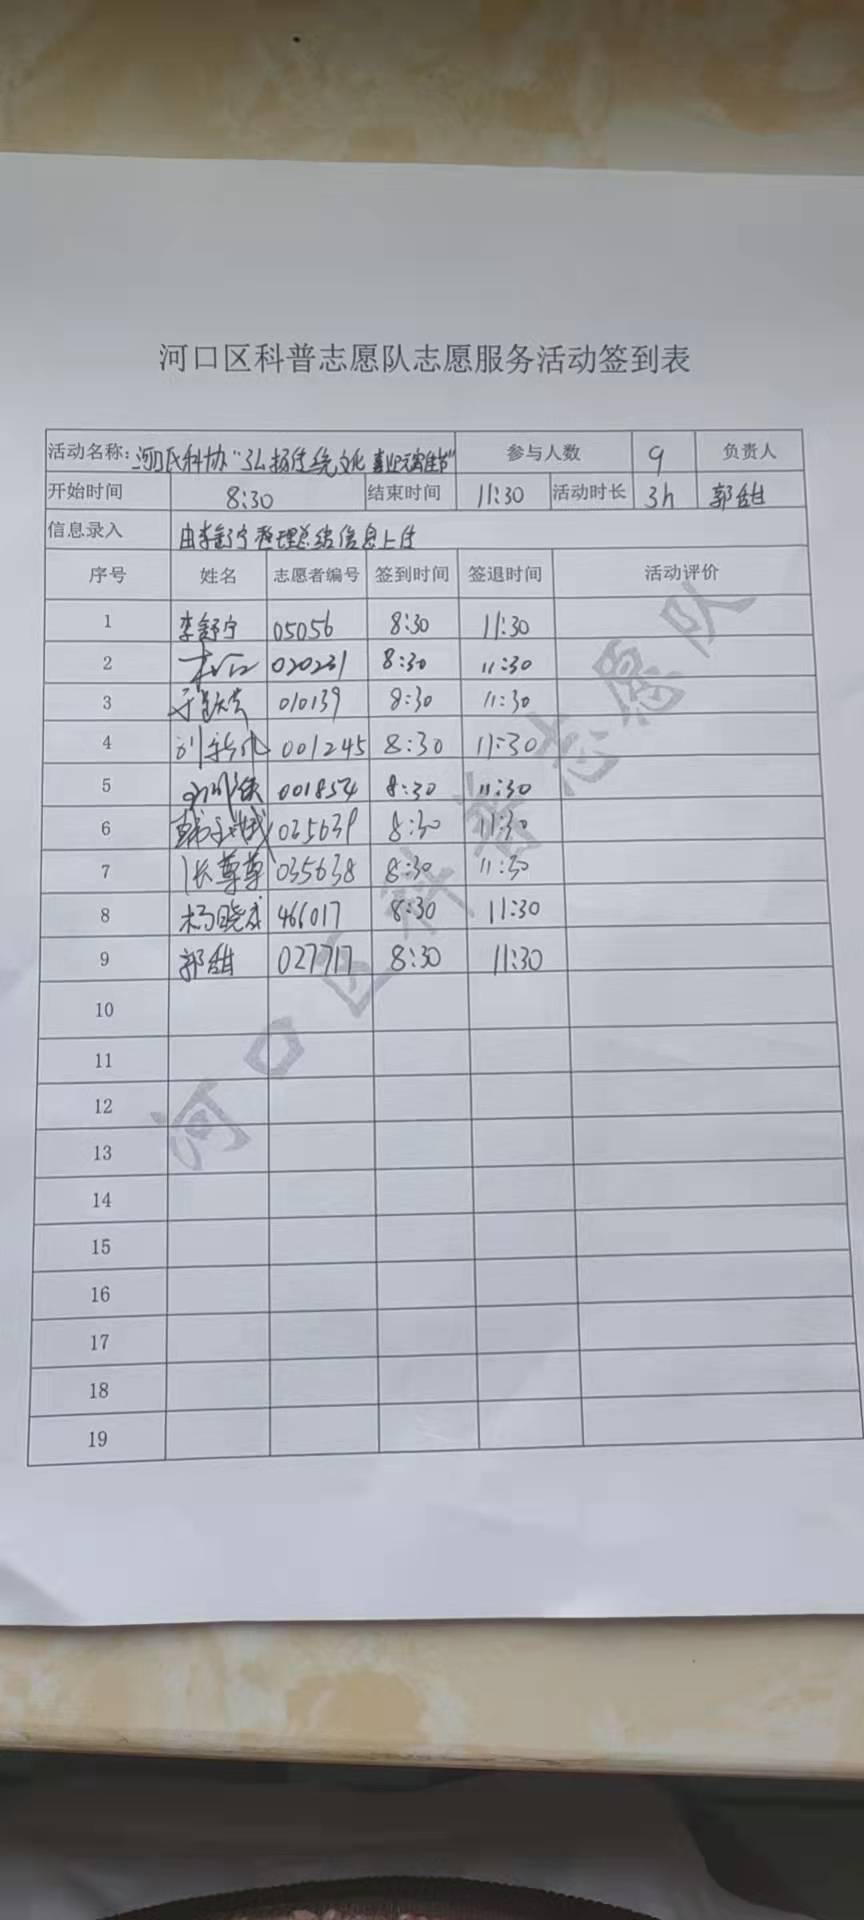 河口区科普志愿队志愿服务活动签到表
活动名称: 河口区科协“弘扬传统文化 喜迎元宵佳节” 参与人数 9 负责人
开始时间 8:30 结束时间 11:30 活动时长 3h 郭甜
信息录入 由李舒宁整理总结信息上传
序号 姓名 志愿者编号 签到时间 签退时间 活动评价
1 李舒宁 05056 8:30 11:30
2 020231 8:30 11:30
3 010139 8:30 11:30
4 001245 8:30 11:30
5 001854 8:30 11:30
6 035639 8:30 11:30
7 张尊尊 035638 8:30 11:30
8 杨晓成 466017 8:30 11:30
9 郭甜 027717 8:30 11:30
10
11
12
13
14
15
16
17
18
19
河口区科普志愿队